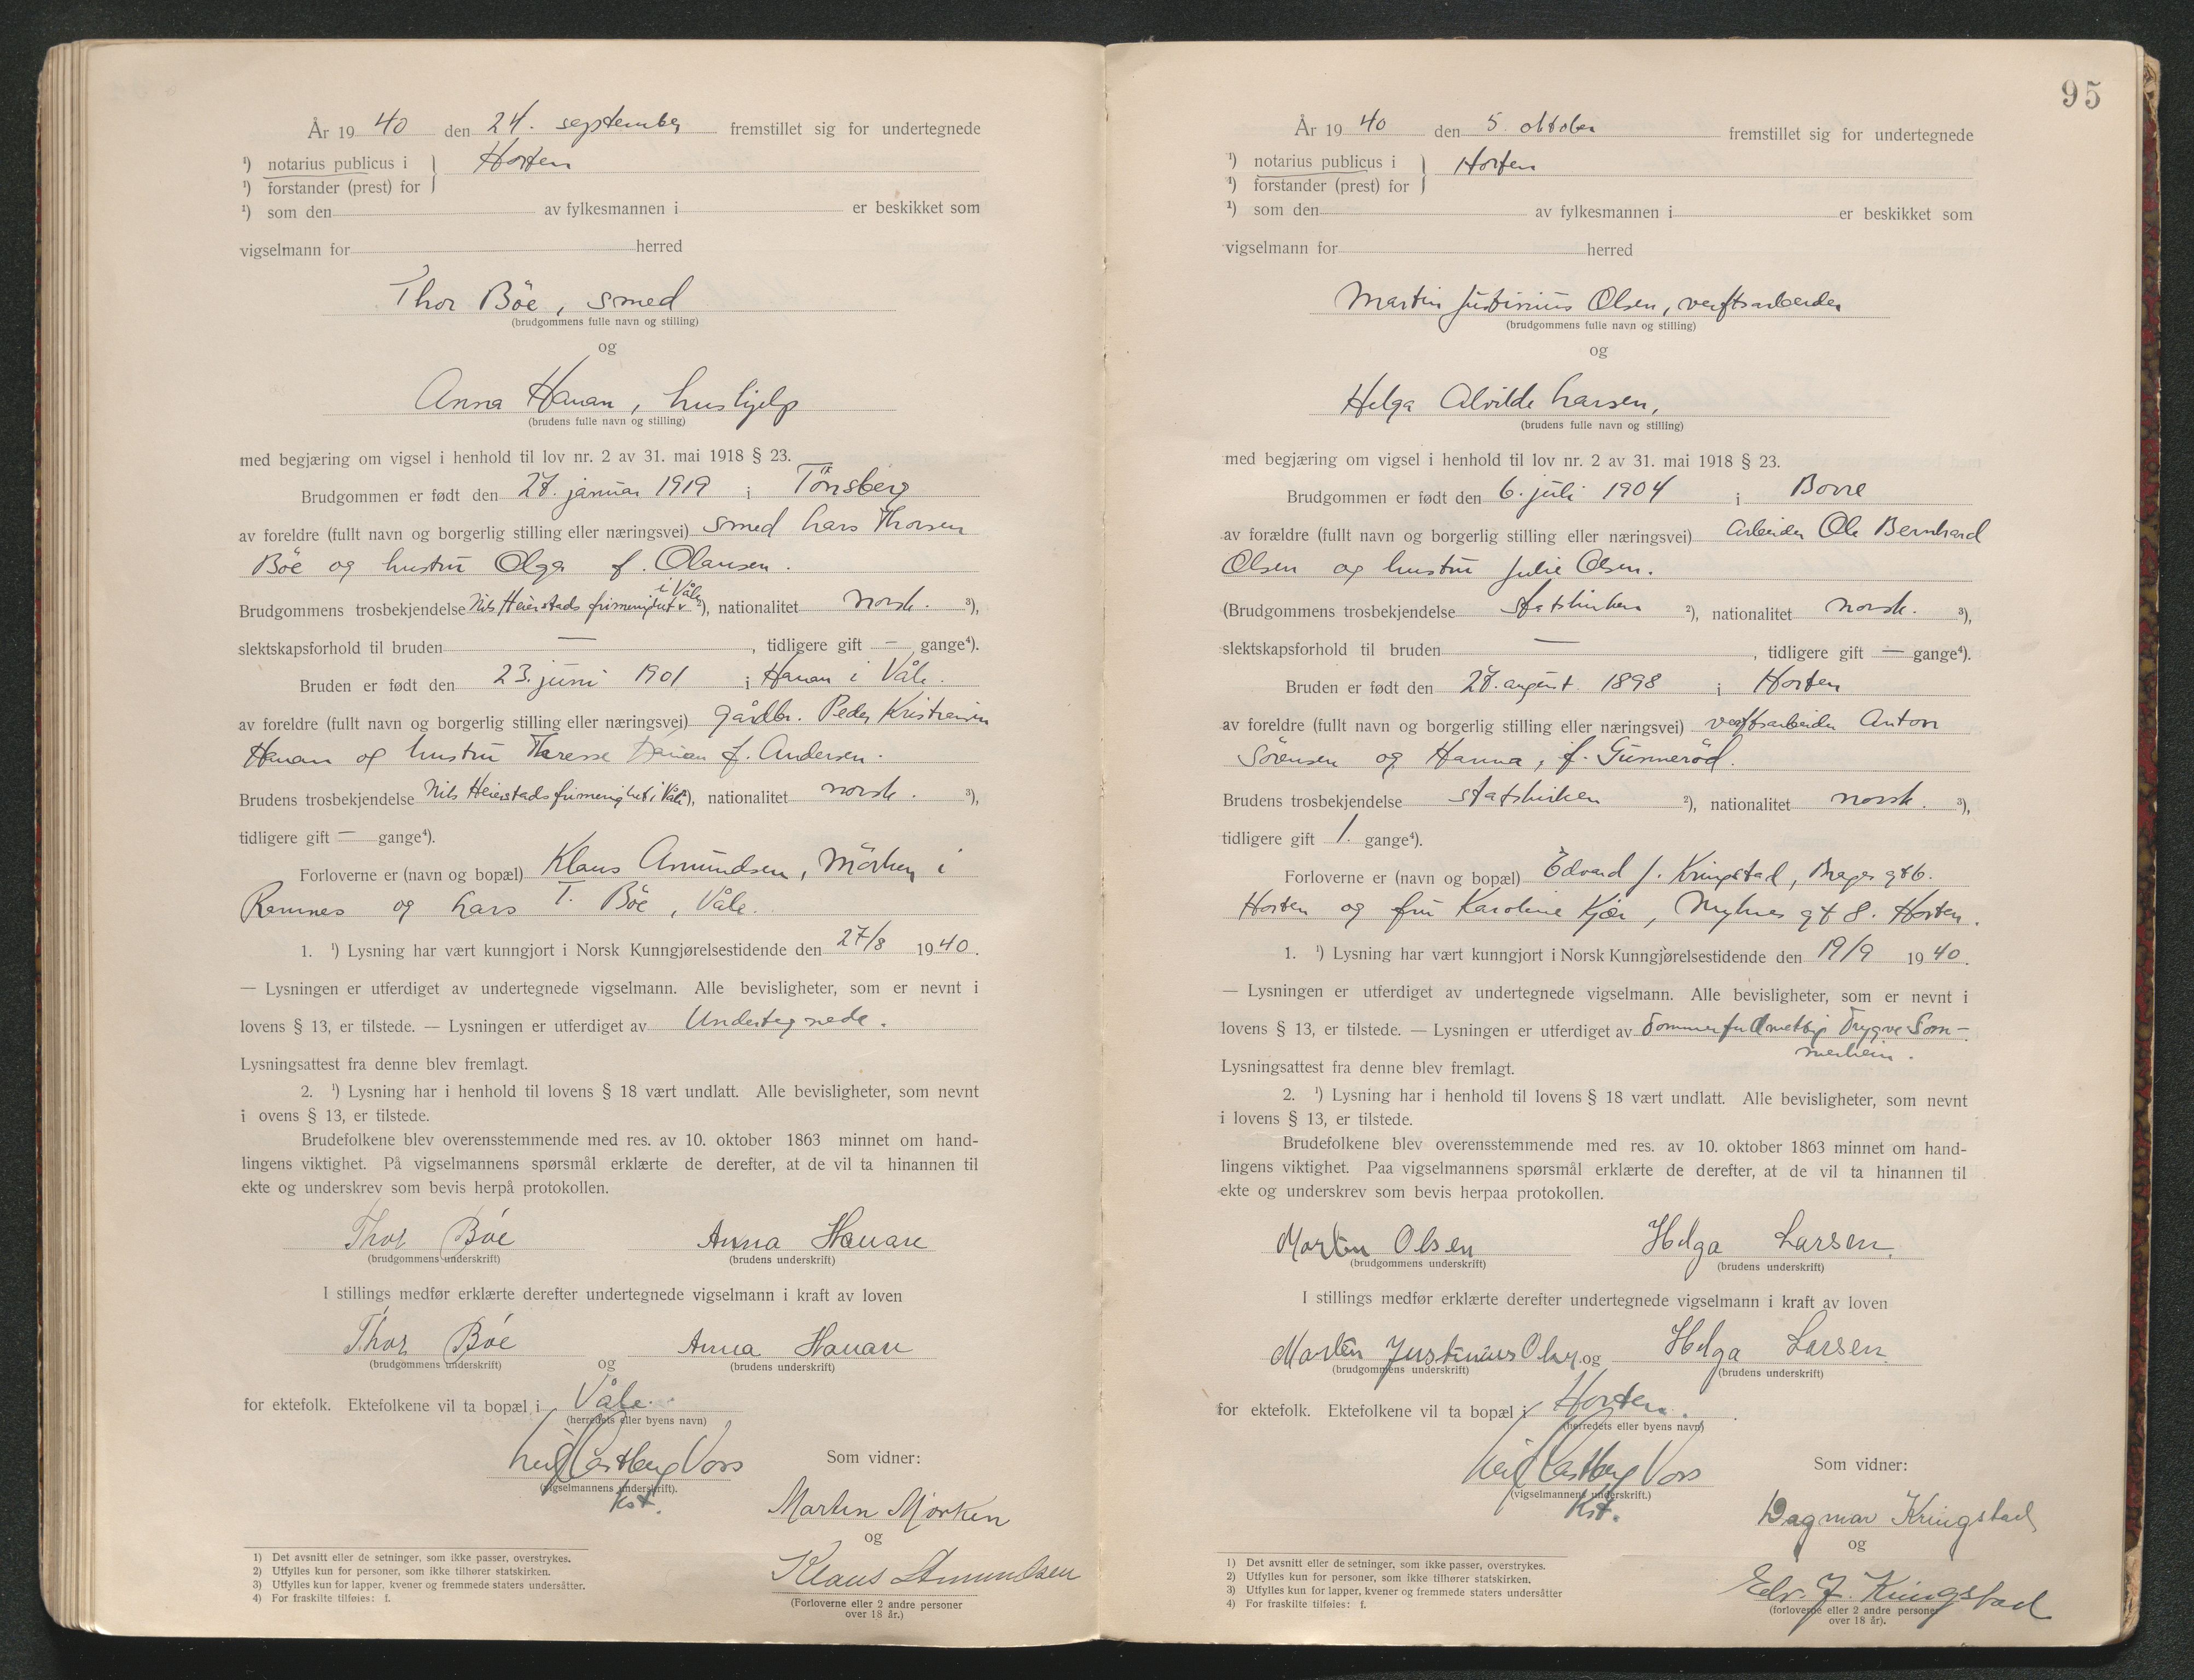 År 19 40 den 24. september fremstillet sig for undertegnede
¹) notarius publicus i } Horten
¹) forstander (prest) for
¹) som den av fylkesmannen i er beskikket som
vigselmann for herred
Thor Böe, smed
(brudgommens fulle navn og stilling)
og
Anna Hanan, hushjelp
(brudens fulle navn og stilling)
med begjæring om vigsel i henhold til lov nr. 2 av 31. mai 1918 § 23.
Brudgommen er født den 27. januar 1919 i Tönsberg
av foreldre (fullt navn og borgerlig stilling eller næringsvei) smed Lars Thorsen
Böe og hustru Olga f. Olausen.
i Våle
Brudgommens trosbekjendelse Nils Heierstads frimenighet ²), nationalitet norsk. ³),
slektskapsforhold til bruden — , tidligere gift — gange⁴).
Bruden er født den 23. juni 1901 i Hanan i Våle.
av foreldre (fullt navn og borgerlig stilling eller næringsvei) gårdbr. Peder Kristensen
Hanan og hustru Therese Hanan f. Andersen.
Brudens trosbekjendelse Nils Heierstads frimenighet i Våle ²), nationalitet norsk. ³),
tidligere gift — gange⁴).
Forloverne er (navn og bopæl) Klaus Amundsen, Mörken i
Ramnes og Lars T. Böe, Våle.
1. ¹) Lysning har vært kunngjort i Norsk Kunngjørelsestidende den 27/8 1940.
— Lysningen er utferdiget av undertegnede vigselmann. Alle bevisligheter, som er nevnt i
lovens § 13, er tilstede. — Lysningen er utferdiget av Undertegnede.
Lysningsattest fra denne blev fremlagt.
2. ¹) Lysning har i henhold til lovens § 18 vært undlatt. Alle bevisligheter, som nevnt
i ovens § 13, er tilstede.
Brudefolkene blev overensstemmende med res. av 10. oktober 1863 minnet om hand-
lingens viktighet. På vigselmannens spørsmål erklærte de derefter, at de vil ta hinannen til
ekte og underskrev som bevis herpå protokollen.
Thor Böe Anna Hanan
(brudgommens underskrift) (brudens underskrift)
I stillings medfør erklærte derefter undertegnede vigselmann i kraft av loven
Thor Böe og Anna Hanan
(brudgommens underskrift) (brudens underskrift)
for ektefolk. Ektefolkene vil ta bopæl i Våle.
(herredets eller byens navn)
Leif Castberg Voss Som vidner:
(vigselmannens underskrift).
kst.
Martin Mörken
og
Klaus Amundsen
(Forloverne eller 2 andre personer
over 18 år.)
1) Det avsnitt eller de setninger, som ikke passer, overstrykes.
2) Utfylles kun for personer, som ikke tilhører statskirken.
3) Utfylles kun for lapper, kvener og fremmede staters undersåtter.
4) For fraskilte tilføies: f.
95
År 19 40 den 5. oktober fremstillet sig for undertegnede
¹) notarius publicus i } Horten
¹) forstander (prest) for
¹) som den av fylkesmannen i er beskikket som
vigselmann for herred
Martin Justinius Olsen, verftsarbeider
(brudgommens fulle navn og stilling)
og
Helga Alvilde Larsen,
(brudens fulle navn og stilling)
med begjæring om vigsel i henhold til lov nr. 2 av 31. mai 1918 § 23.
Brudgommen er født den 6. juli 1904 i Borre
av forældre (fullt navn og borgerlig stilling eller næringsvei) Arbeider Ole Bernhard
Olsen og hustru Julie Olsen.
(Brudgommens trosbekjendelse statskirken ²), nationalitet norsk. ³),
slektskapsforhold til bruden — , tidligere gift — gange⁴).
Bruden er født den 27. august 1898 i Horten
av foreldre (fullt navn og borgerlig stilling eller næringsvei) verftsarbeider Anton
Sörensen og Hanna, f. Gunneröd.
Brudens trosbekjendelse statskirken ²), nationalitet norsk. ³),
tidligere gift 1. gange⁴).
Forloverne er (navn og bopæl) Edvard J. Kringstad, Brages gt 6.
Horten og fru Karoline Kjær, gt 8. Horten.
1. ¹) Lysning har vært kunngjort i Norsk Kunngjørelsestidende den 19/9 1940.
— Lysningen er utferdiget av undertegnede vigselmann. Alle bevisligheter, som er nevnt i
lovens § 13, er tilstede. — Lysningen er utferdiget av Trygve Som-
merhein.
Lysningsattest fra denne blev fremlagt.
2. ¹) Lysning har i henhold til lovens § 18 vært undlatt. Alle bevisligheter, som nevnt
i lovens § 13, er tilstede.
Brudefolkene blev overensstemmende med res. av 10. oktober 1863 minnet om hand-
lingens viktighet. Paa vigselmannens spørsmål erklærte de derefter, at de vil ta hinannen til
ekte og underskrev som bevis herpaa protokollen.
Martin Olsen Helga Larsen.
(brudgommens underskrift) (brudens underskrift)
I stillings medfør erklærte derefter undertegnede vigselmann i kraft av loven
Martin Justinius Olsen og Helga Larsen.
(brudgommens underskrift) (brudens underskrift)
for ektefolk. Ektefolkene vil ta bopæl i Horten.
(herredets eller byens navn)
Leif Castberg Voss Som vidner:
(vigselmannens underskrift.)
Kst.
Dagmar Kringstad
og
Edv. J. Kringstad
(forloverne eller 2 andre personer
over 18 år).
1) Det avsnitt eller de setninger, som ikke passer, overstrykes.
2) Utfylles kun for personer, som ikke tilhører statskirken.
3) Utfylles kun for lapper, kvener og fremmede staters undersåtter
4) For fraskilte tilføies: f.